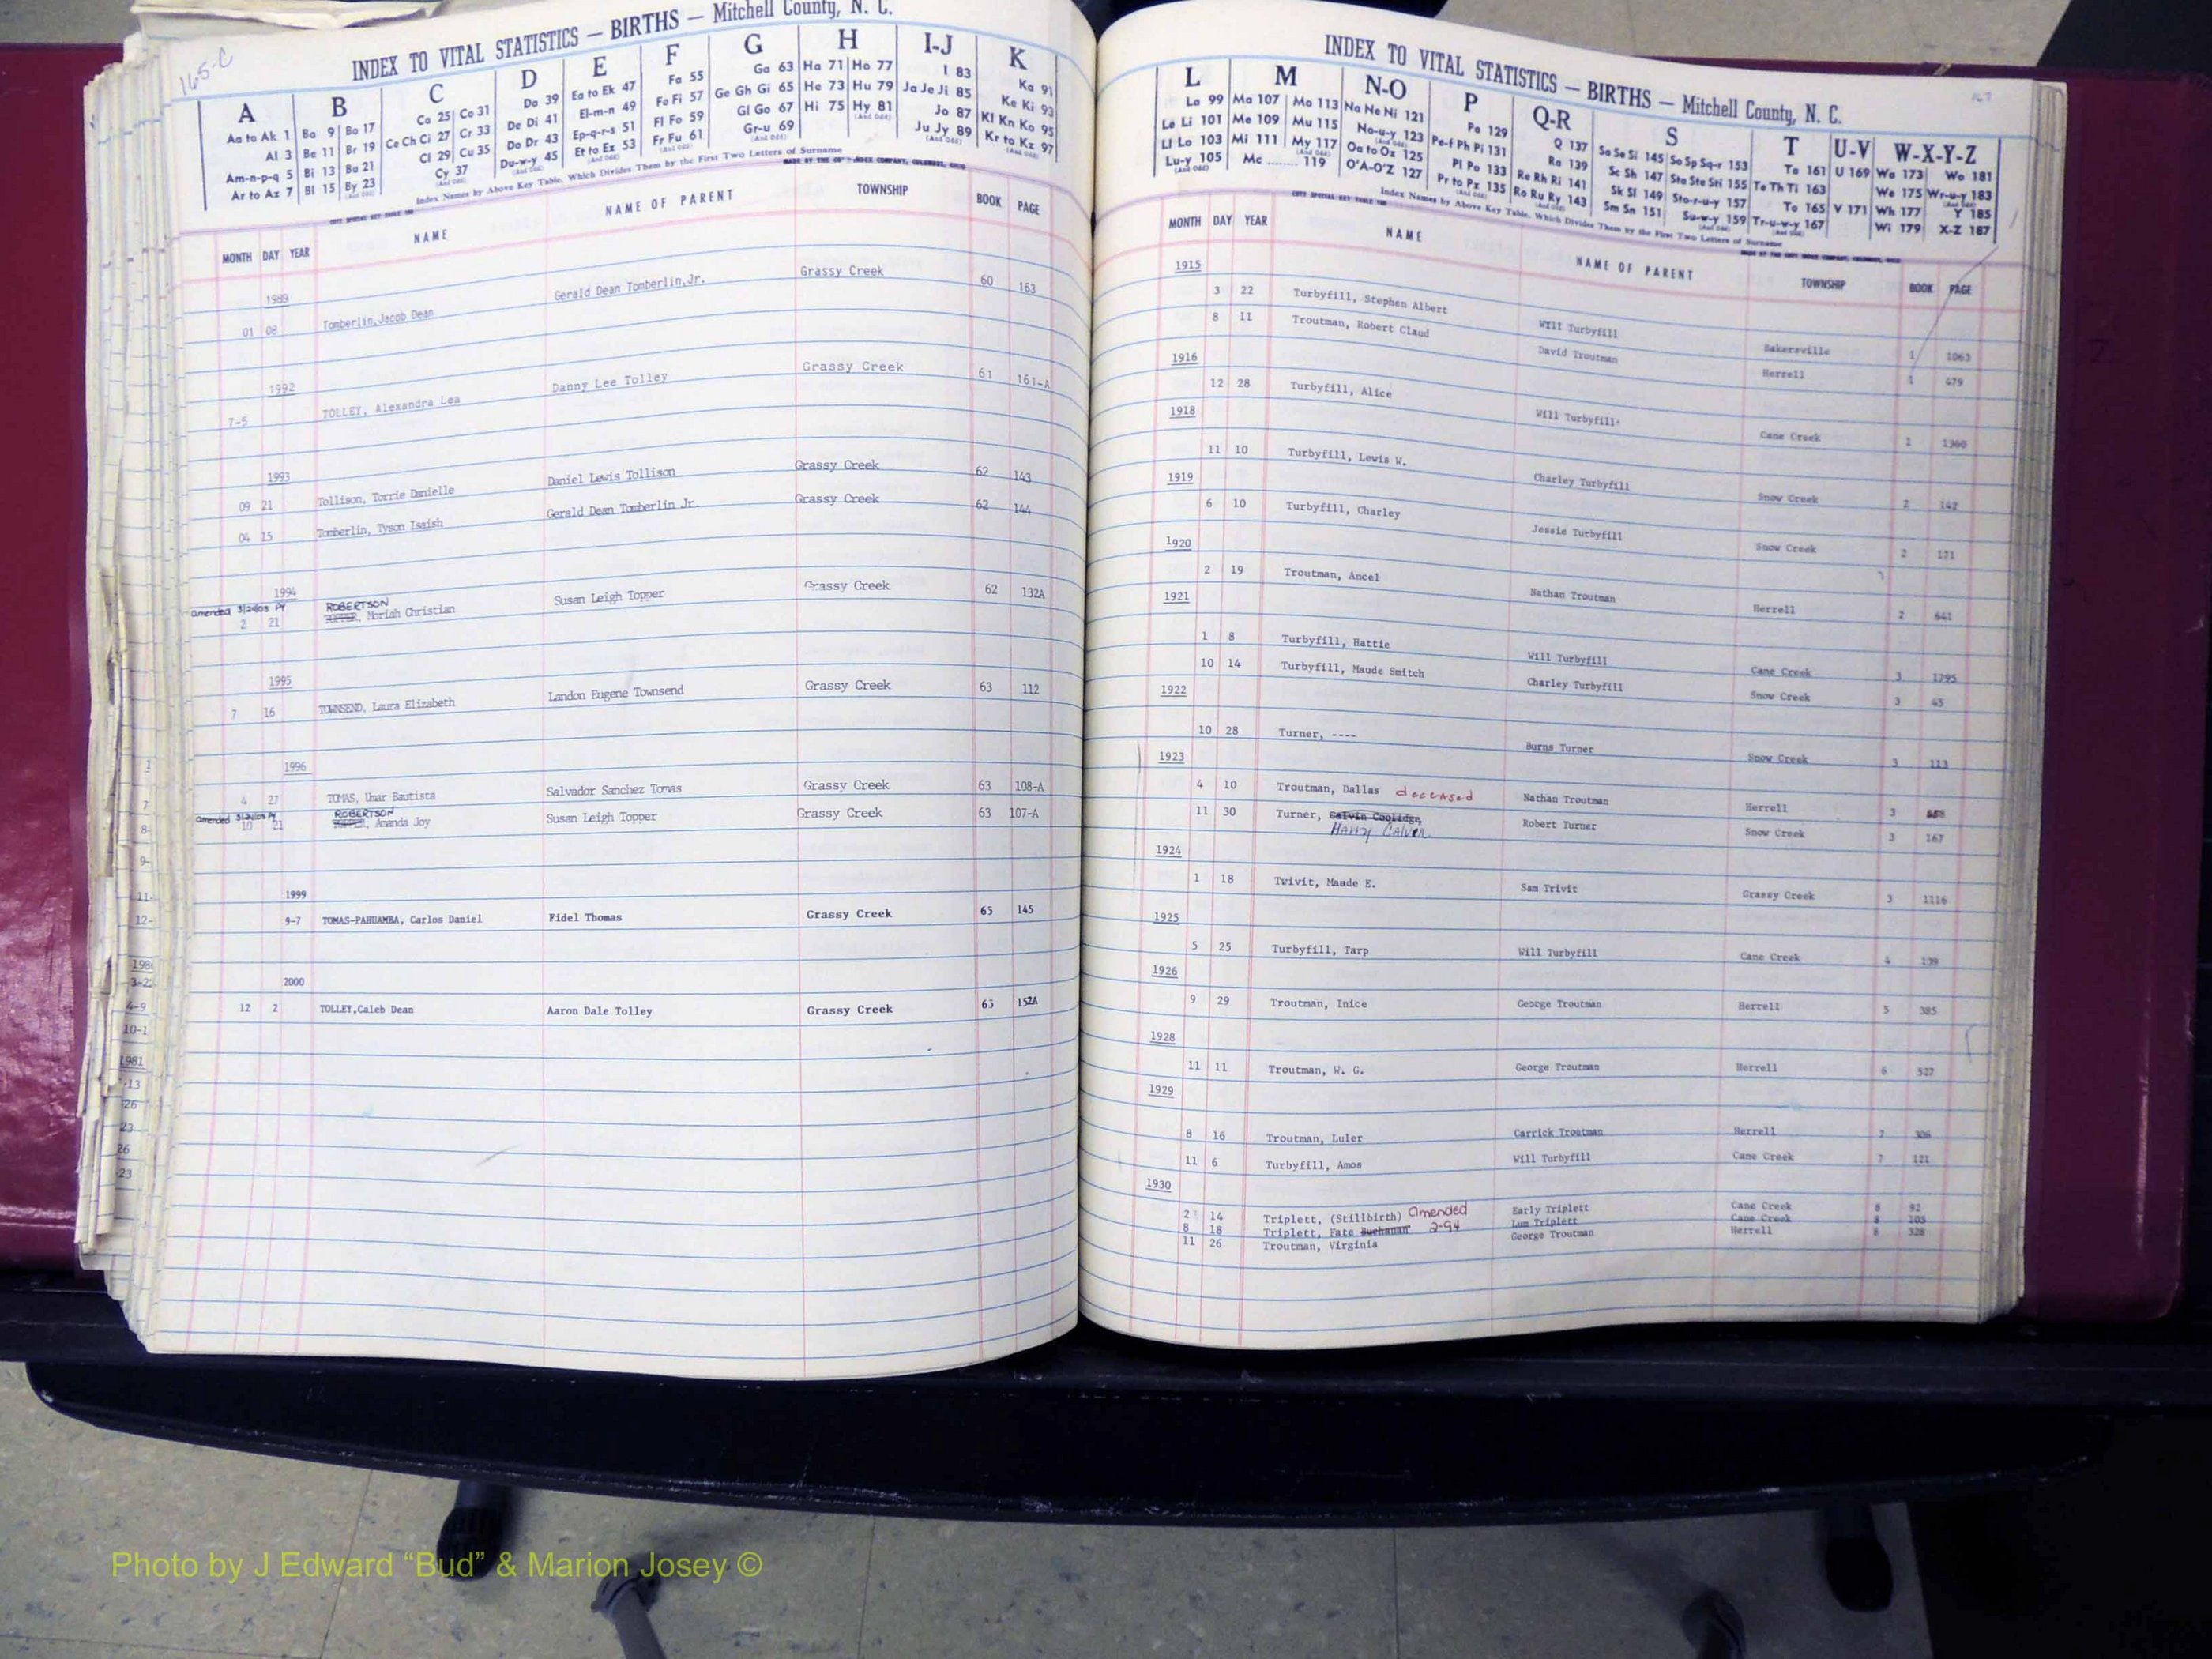 165-C
INDEX TO VITAL STATISTICS — BIRTHS — Mitchell County, N. C.
A B C D E F G H I-J K
Aa to Ak 1 Ba 9 Bo 17 Ca 25 Co 31 Da 39 Ea to Ek 47 Fa 55 Ga 63 Ha 71 Ho 77 I 83 Ka 91
Al 3 Be 11 Br 19 Ce Ch Ci 27 Cr 33 De Di 41 El-m-n 49 Fe Fi 57 Ge Gh Gi 65 He 73 Hu 79 Ja Je Ji 85 Ke Ki 93
Am-n-p-q 5 Bi 13 Bu 21 Cl 29 Cu 35 Do Dr 43 Ep-q-r-s 51 Fl Fo 59 Gl Go 67 Hi 75 Hy 81 Jo 87 Kl Kn Ko 95
Ar to Az 7 Bl 15 By 23 Cy 37 Du-w-y 45 Et to Ez 53 Fr Fu 61 Gr-u 69 Ju Jy 89 Kr to Kz 97
Index Names by Above Key Table, Which Divides Them by the First Two Letters of Surname
MONTH DAY YEAR NAME NAME OF PARENT TOWNSHIP BOOK PAGE
1989
01 08 Tomberlin,Jacob Dean Gerald Dean Tomberlin,Jr. Grassy Creek 60 163
1992
7-5 TOLLEY, Alexandra Lea Danny Lee Tolley Grassy Creek 61 161-A
1993
09 21 Tollison, Torrie Danielle Daniel Lewis Tollison Grassy Creek 62 143
04 15 Tomberlin, Tyson Isaish Gerald Dean Tomberlin Jr. Grassy Creek 62 144
1994
amended ROBERTSON
2 21 , Moriah Christian Susan Leigh Topper Grassy Creek 62 132A
1995
7 16 TOWNSEND, Laura Elizabeth Landon Eugene Townsend Grassy Creek 63 112
1996
4 27 TOMAS, Umar Bautista Salvador Sanchez Tomas Grassy Creek 63 108-A
amended ROBERTSON
10 21 , Amanda Joy Susan Leigh Topper Grassy Creek 63 107-A
1999
9-7 TOMAS-PAHUAMBA, Carlos Daniel Fidel Thomas Grassy Creek 65 145
2000
12 2 TOLLEY,Caleb Dean Aaron Dale Tolley Grassy Creek 65 152A
INDEX TO VITAL STATISTICS — BIRTHS — Mitchell County, N. C.
L M N-O P Q-R S T U-V W-X-Y-Z
La 99 Ma 107 Mo 113 Na Ne Ni 121 Pa 129 Q 137 Sa Se Si 145 So Sp Sq-r 153 Ta 161 U 169 Wa 173 Wo 181
Le Li 101 Me 109 Mu 115 No-u-y 123 Pe-f Ph Pi 131 Ra 139 Sc Sh 147 Sta Ste Sti 155 Te Th Ti 163 We 175 Wr-u-y 183
Ll Lo 103 Mi 111 My 117 Oa to Oz 125 Pl Po 133 Re Rh Ri 141 Sk Sl 149 Sto-r-u-y 157 To 165 V 171 Wh 177 Y 185
Lu-y 105 Mc 119 O'A-O'Z 127 Pr to Pz 135 Ro Ru Ry 143 Sm Sn 151 Su-w-y 159 Tr-u-w-y 167 Wi 179 X-Z 187
Index Names by Above Key Table, Which Divides Them by the First Two Letters of Surname
MONTH DAY YEAR NAME NAME OF PARENT TOWNSHIP BOOK PAGE
1915
3 22 Turbyfill, Stephen Albert Will Turbyfill Bakersville 1 1063
8 11 Troutman, Robert Claud David Troutman Herrell 1 479
1916
12 28 Turbyfill, Alice Will Turbyfill Cane Creek 1 1360
1918
11 10 Turbyfill, Lewis W. Charley Turbyfill Snow Creek 2 142
1919
6 10 Turbyfill, Charley Jessie Turbyfill Snow Creek 2 171
1920
2 19 Troutman, Ancel Nathan Troutman Herrell 2 641
1921
1 8 Turbyfill, Hattie Will Turbyfill Cane Creek 3 1795
10 14 Turbyfill, Maude Smitch Charley Turbyfill Snow Creek 3 65
1922
10 28 Turner, ---- Burns Turner Snow Creek 3 113
1923
4 10 Troutman, Dallas deceased Nathan Troutman Herrell 3
11 30 Turner, Calvin Coolidge, Robert Turner Snow Creek 3 167
Harry Calvin
1924
1 18 Tvivit, Maude E. Sam Trivit Grassy Creek 3 1116
1925
5 25 Turbyfill, Tarp Will Turbyfill Cane Creek 4 139
1926
9 29 Troutman, Inice George Troutman Herrell 5 385
1928
11 11 Troutman, W. G. George Troutman Herrell 6 527
1929
8 16 Troutman, Luler Carrick Troutman Herrell 7 306
11 6 Turbyfill, Amos Will Turbyfill Cane Creek 7 121
1930
2 14 Triplett, (Stillbirth) Amended Early Triplett Cane Creek 8 92
8 18 Triplett, Fate Buchanan 2-94 Lum Triplett Cane Creek 8 105
11 26 Troutman, Virginia George Troutman Herrell 8 328
Photo by J Edward “Bud” & Marion Josey ©